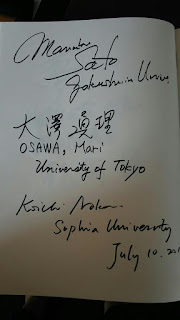 Sato
Gakushuin Univ.
大澤眞理
OSAWA, Mari
University of Tokyo
Koichi
Sophia University
July 10. 201